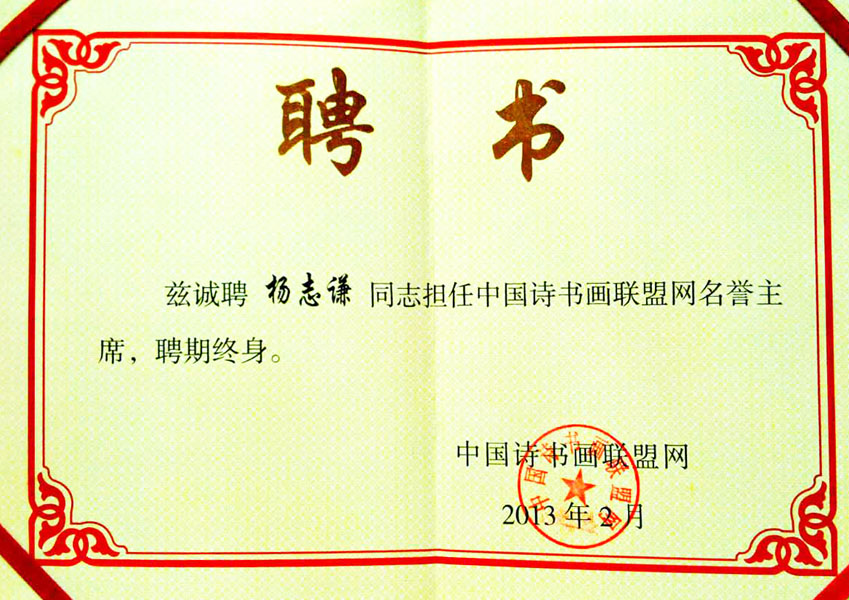 聘 书
兹诚聘 杨志谦 同志担任中国诗书画联盟网名誉主
席，聘期终身。
中国诗书画联盟网
2013 年 2 月
中国诗书画联盟网